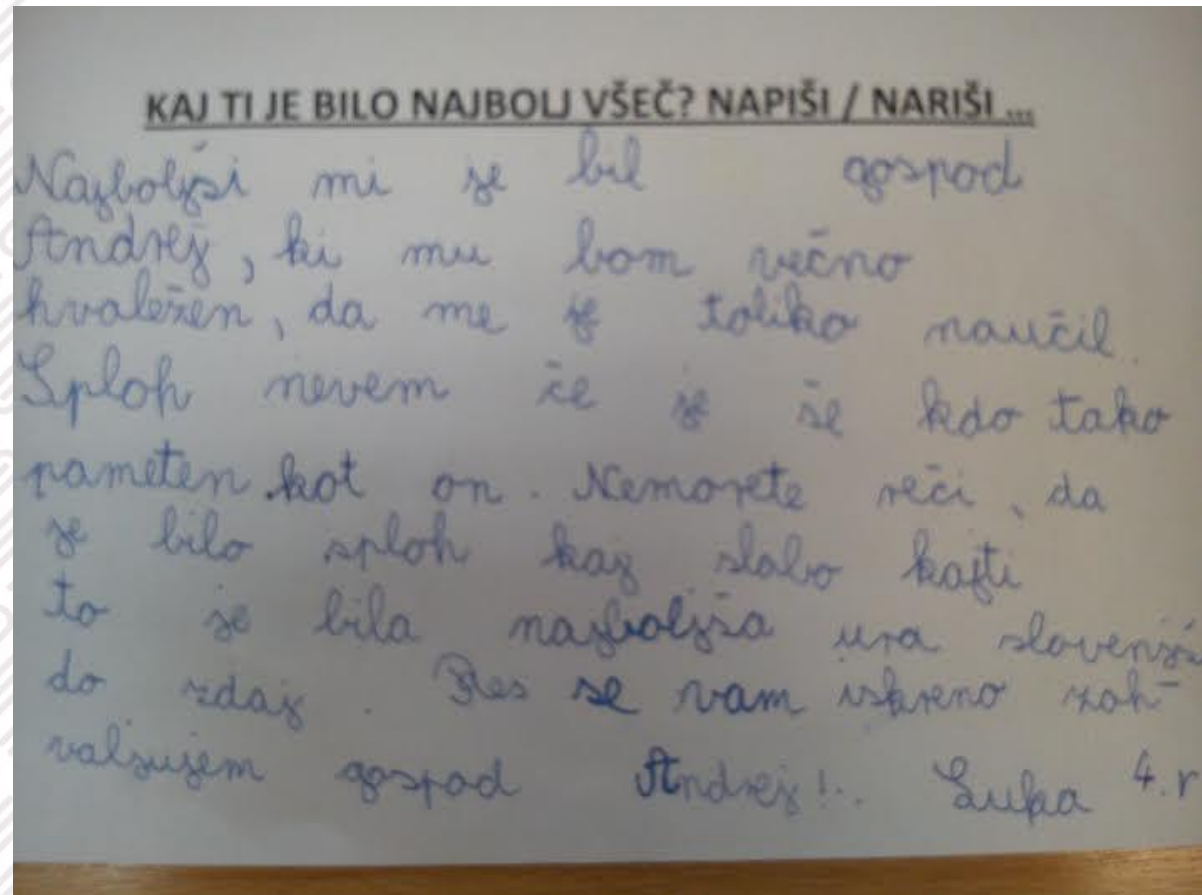 KAJ TI JE BILO NAJBOLJ VŠEČ? NAPIŠI / NARIŠI ...
Najboljši mi je bil gospod
Andrej, ki mu bom večno
hvaležen, da me je toliko naučil.
Sploh nevem če je še kdo tako
pameten kot on. Nemorete reči, da
je bilo sploh kaj slabo kajti
to je bila najboljša ura
do zdaj. Res se vam iskreno zah-
valjujem gospod Andrej!.. Luka 4.r